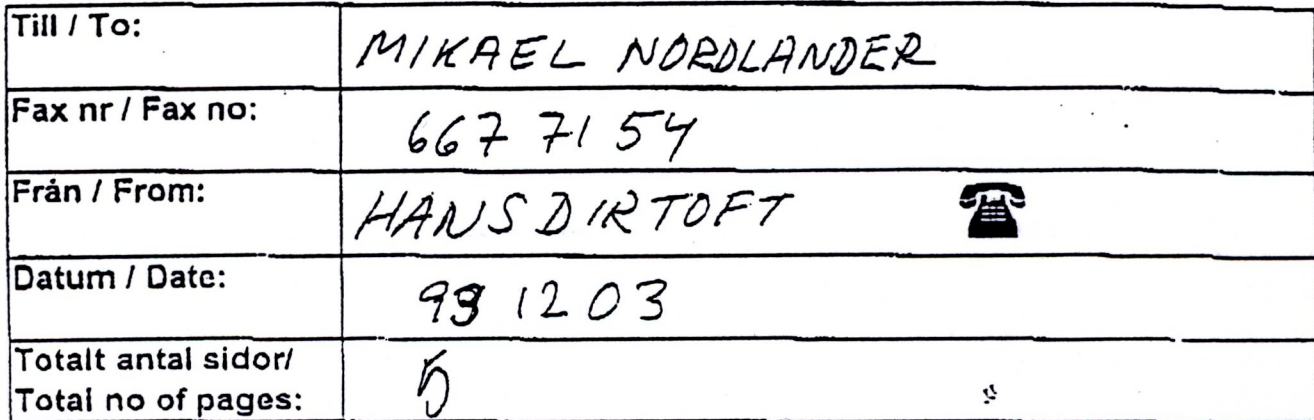 Till / To: MIKAEL NORDLANDER
Fax nr / Fax no: 667 71 54
Från / From: HANS DIRTOFT
Datum / Date: 991203
Totalt antal sidor/
Total no of pages: 5